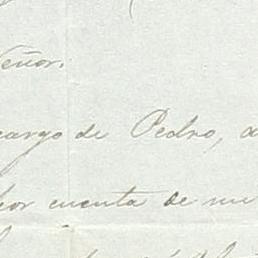 Señor.
cargo de Pedro, a
por cuenta de mi